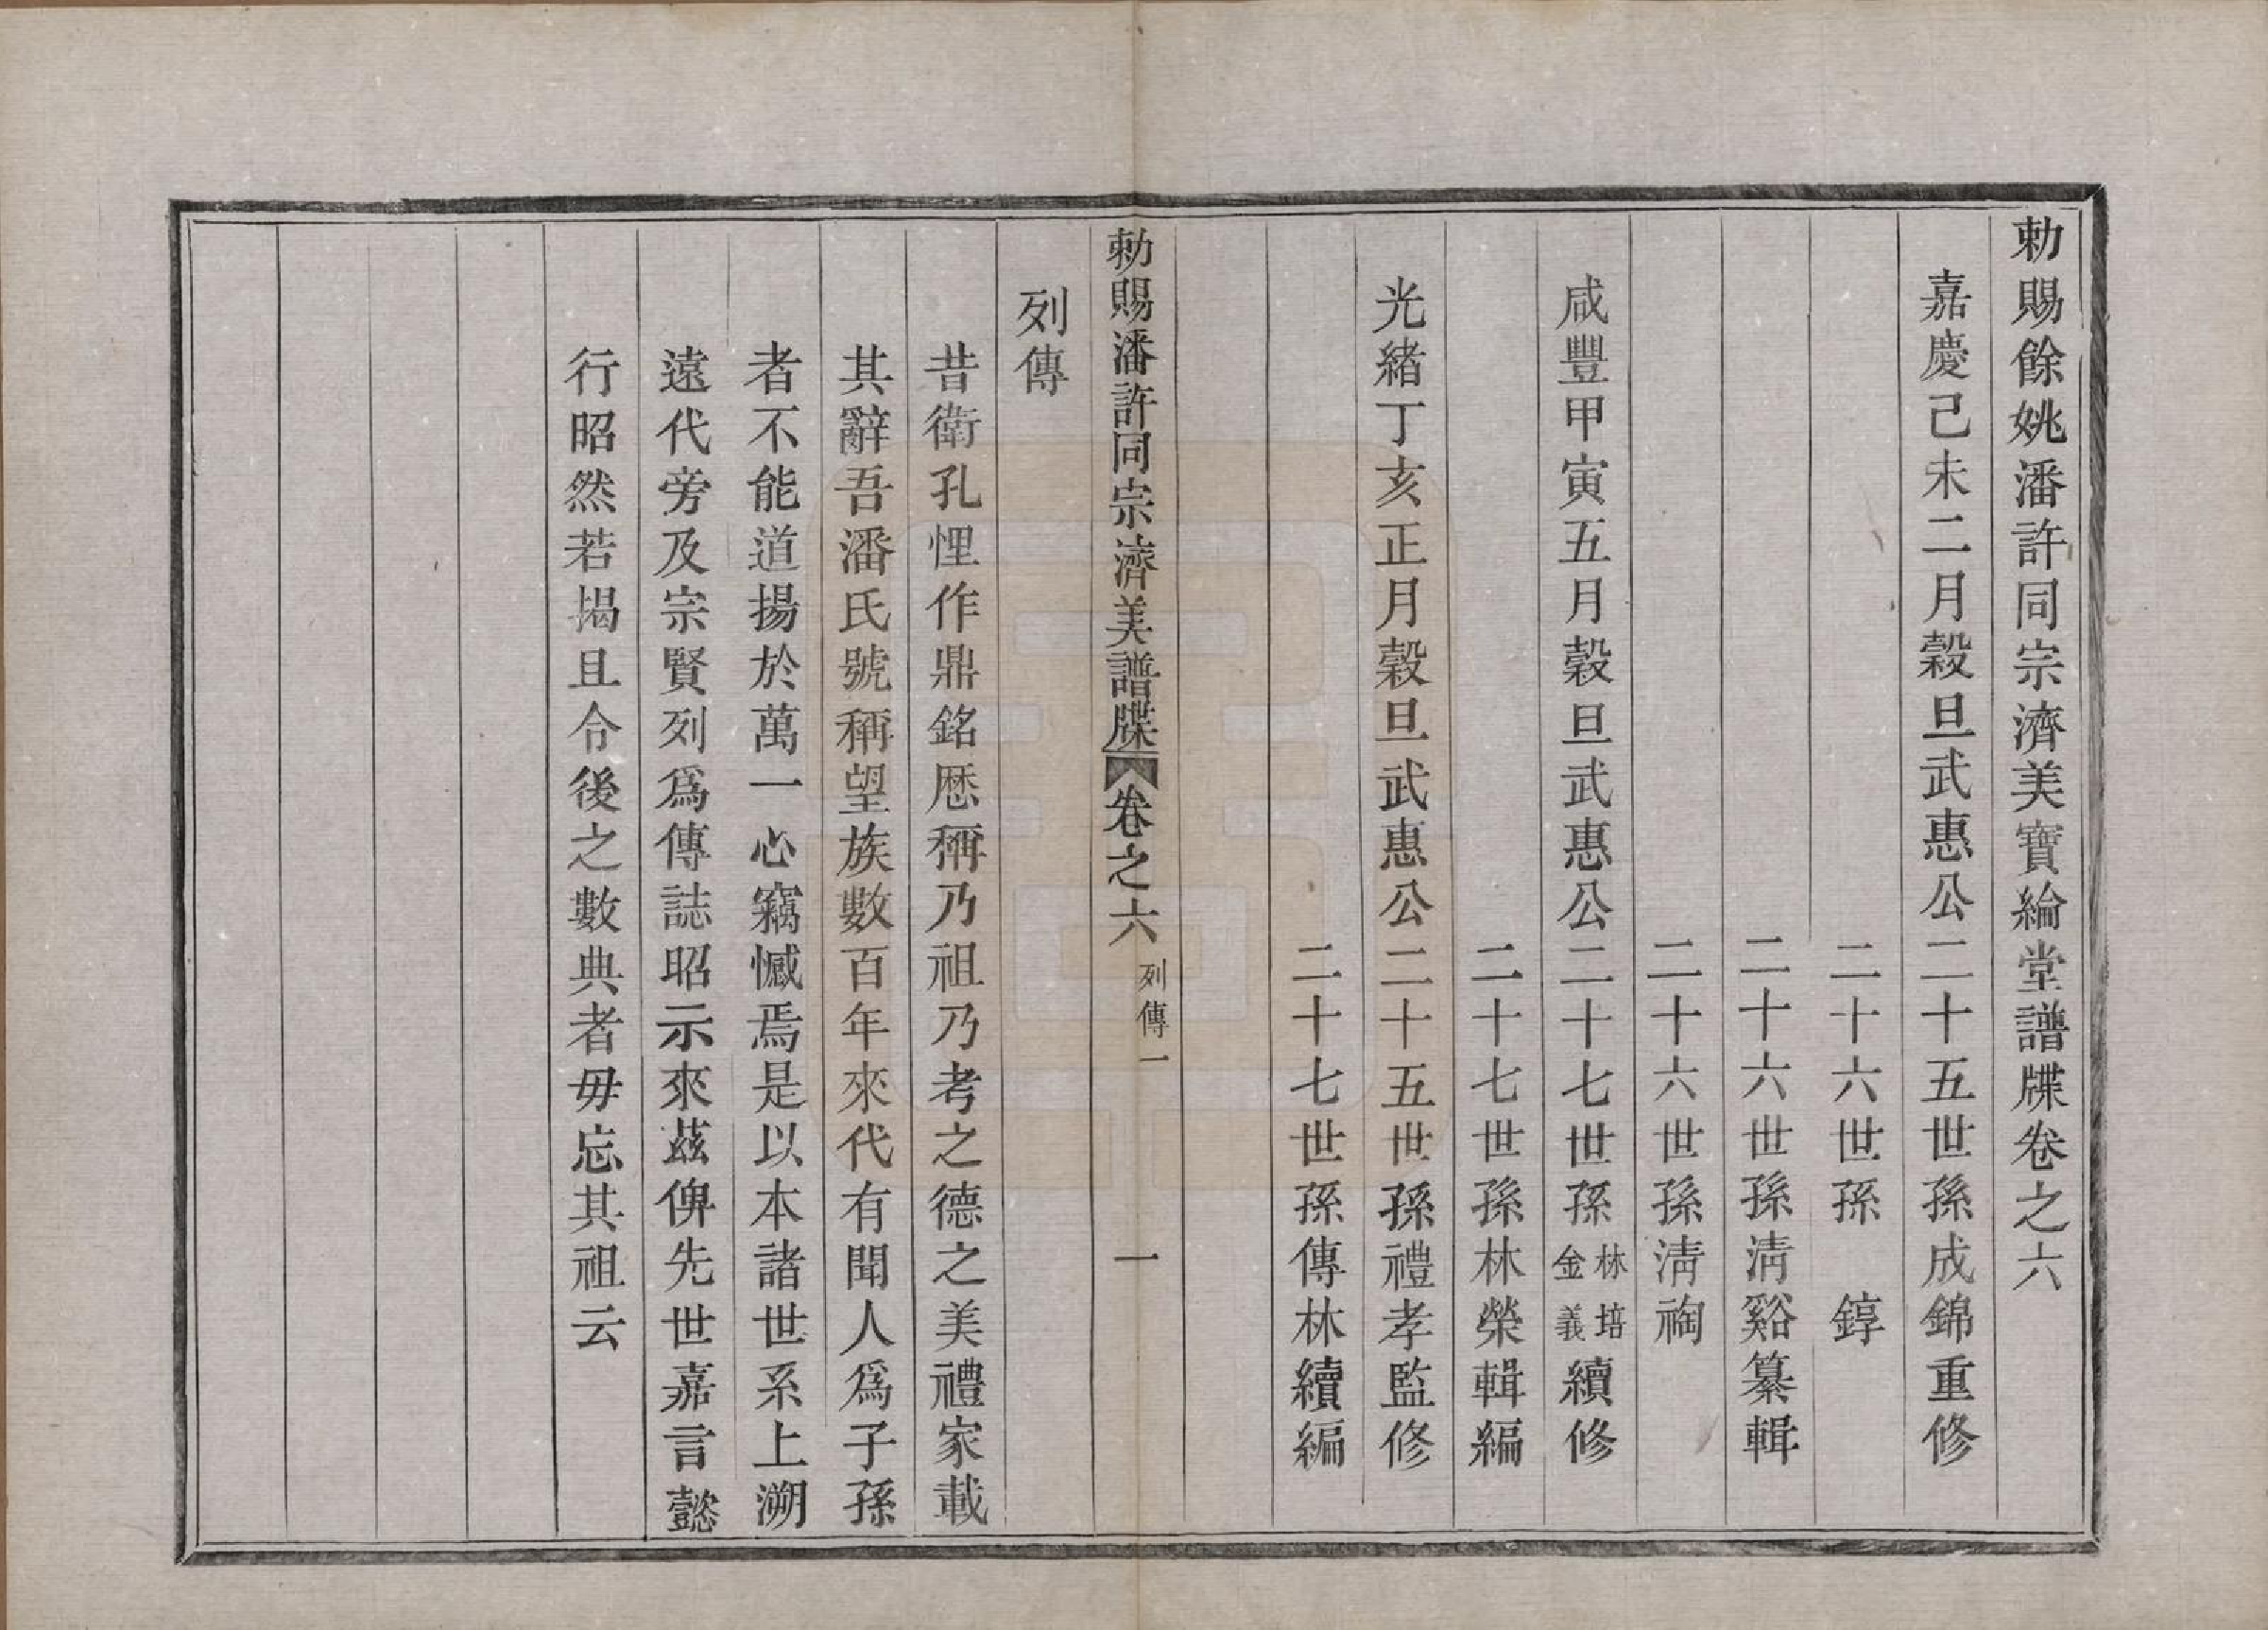 勅賜餘姚潘許同宗濟美寶綸堂譜牒卷之六
嘉慶己未二月穀旦武惠公二十五世孫成錦重修
二十六世孫 錞
二十六世孫淸谿纂輯
二十六世孫淸裪
咸豐甲寅五月穀旦武惠公二十七世孫林培金義續修
二十七世孫林榮輯編
光緒丁亥正月穀旦武惠公二十五世孫禮孝監修
二十七世孫傳林續編
勅賜潘許同宗濟美譜牒 卷之六 列傳一 一
列傳
昔衛孔悝作鼎銘厯稱乃祖乃考之德之美禮家載
其辭吾潘氏號稱望族數百年來代有聞人爲子孫
者不能道揚於萬一心竊憾焉是以本諸世系上溯
遠代旁及宗賢列爲傳誌昭示來茲俾先世嘉言懿
行昭然若揭且令後之數典者毋忘其祖云